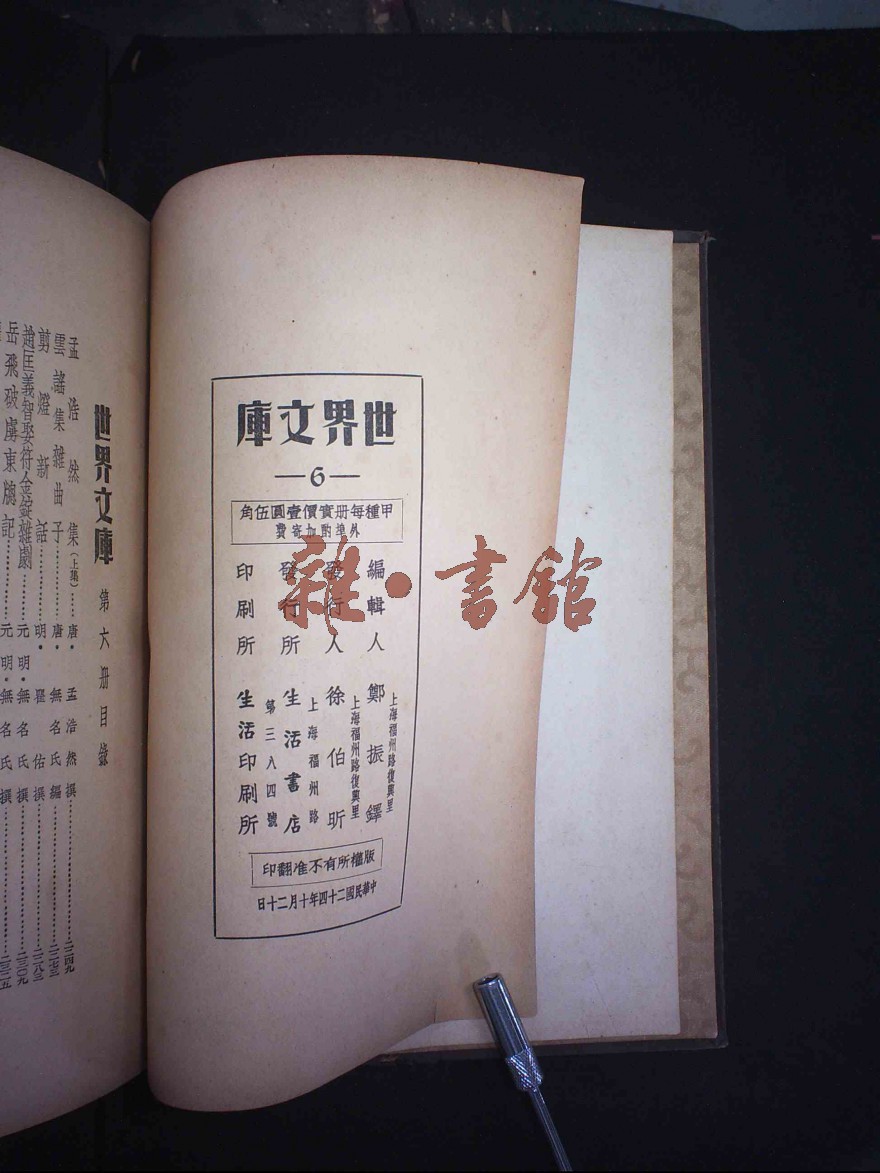 世界文庫
—6—
甲種每册實價壹圓伍角
外埠酌加寄費
編輯人 鄭振鐸
上海福州路復興里
發行人 徐伯昕
上海福州路復興里
發行所 生活書店
上海福州路
第三八四號
印刷所 生活印刷所
版權所有不准翻印
中華民國二十四年十月二十日
雜·書館
世界文庫 第六册目錄
孟浩然集(上集)……唐·孟浩然撰……二二四九
雲謠集雜曲子……唐·無名氏編……二二七三
剪燈新話……明·瞿佑撰……二二八三
趙匡義智娶符金錠雜劇……元明·無名氏撰……二三〇九
岳飛破虜東牕記……元明·無名氏撰……二三二五